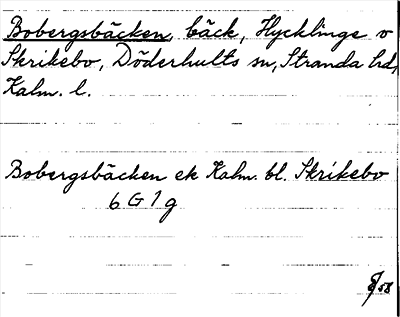 Bobergsbäcken, bäck, Hycklinge o
Skrikebo, Döderhults sn, Stranda hd,
Kalm. l.
Bobergsbäcken ek Kalm. bl. Skrikebo
6 G 1 g